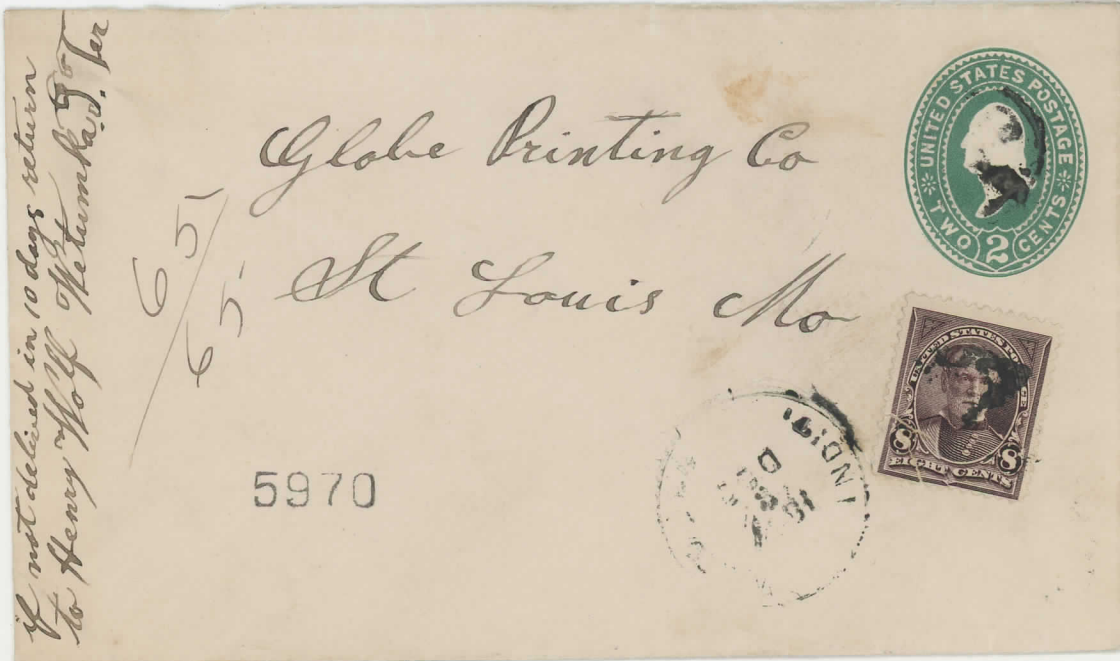 if not delived in 10 days return
to Henry Wolf Wetumka I. Ter
Globe Printing Co
St Louis Mo
65
65
5970
UNITED STATES POSTAGE
TWO 2 CENTS
UNITED STATES POSTAGE
8 8
EIGHT CENTS
IND TY